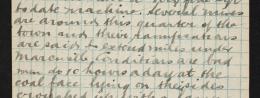 to date machine. Several mines
are around this quarter of the
town and their ramifications
are said to extend miles under
Marcinelle. Conditions are bad
men do 10 hours a day at the
coal face lying on their sides